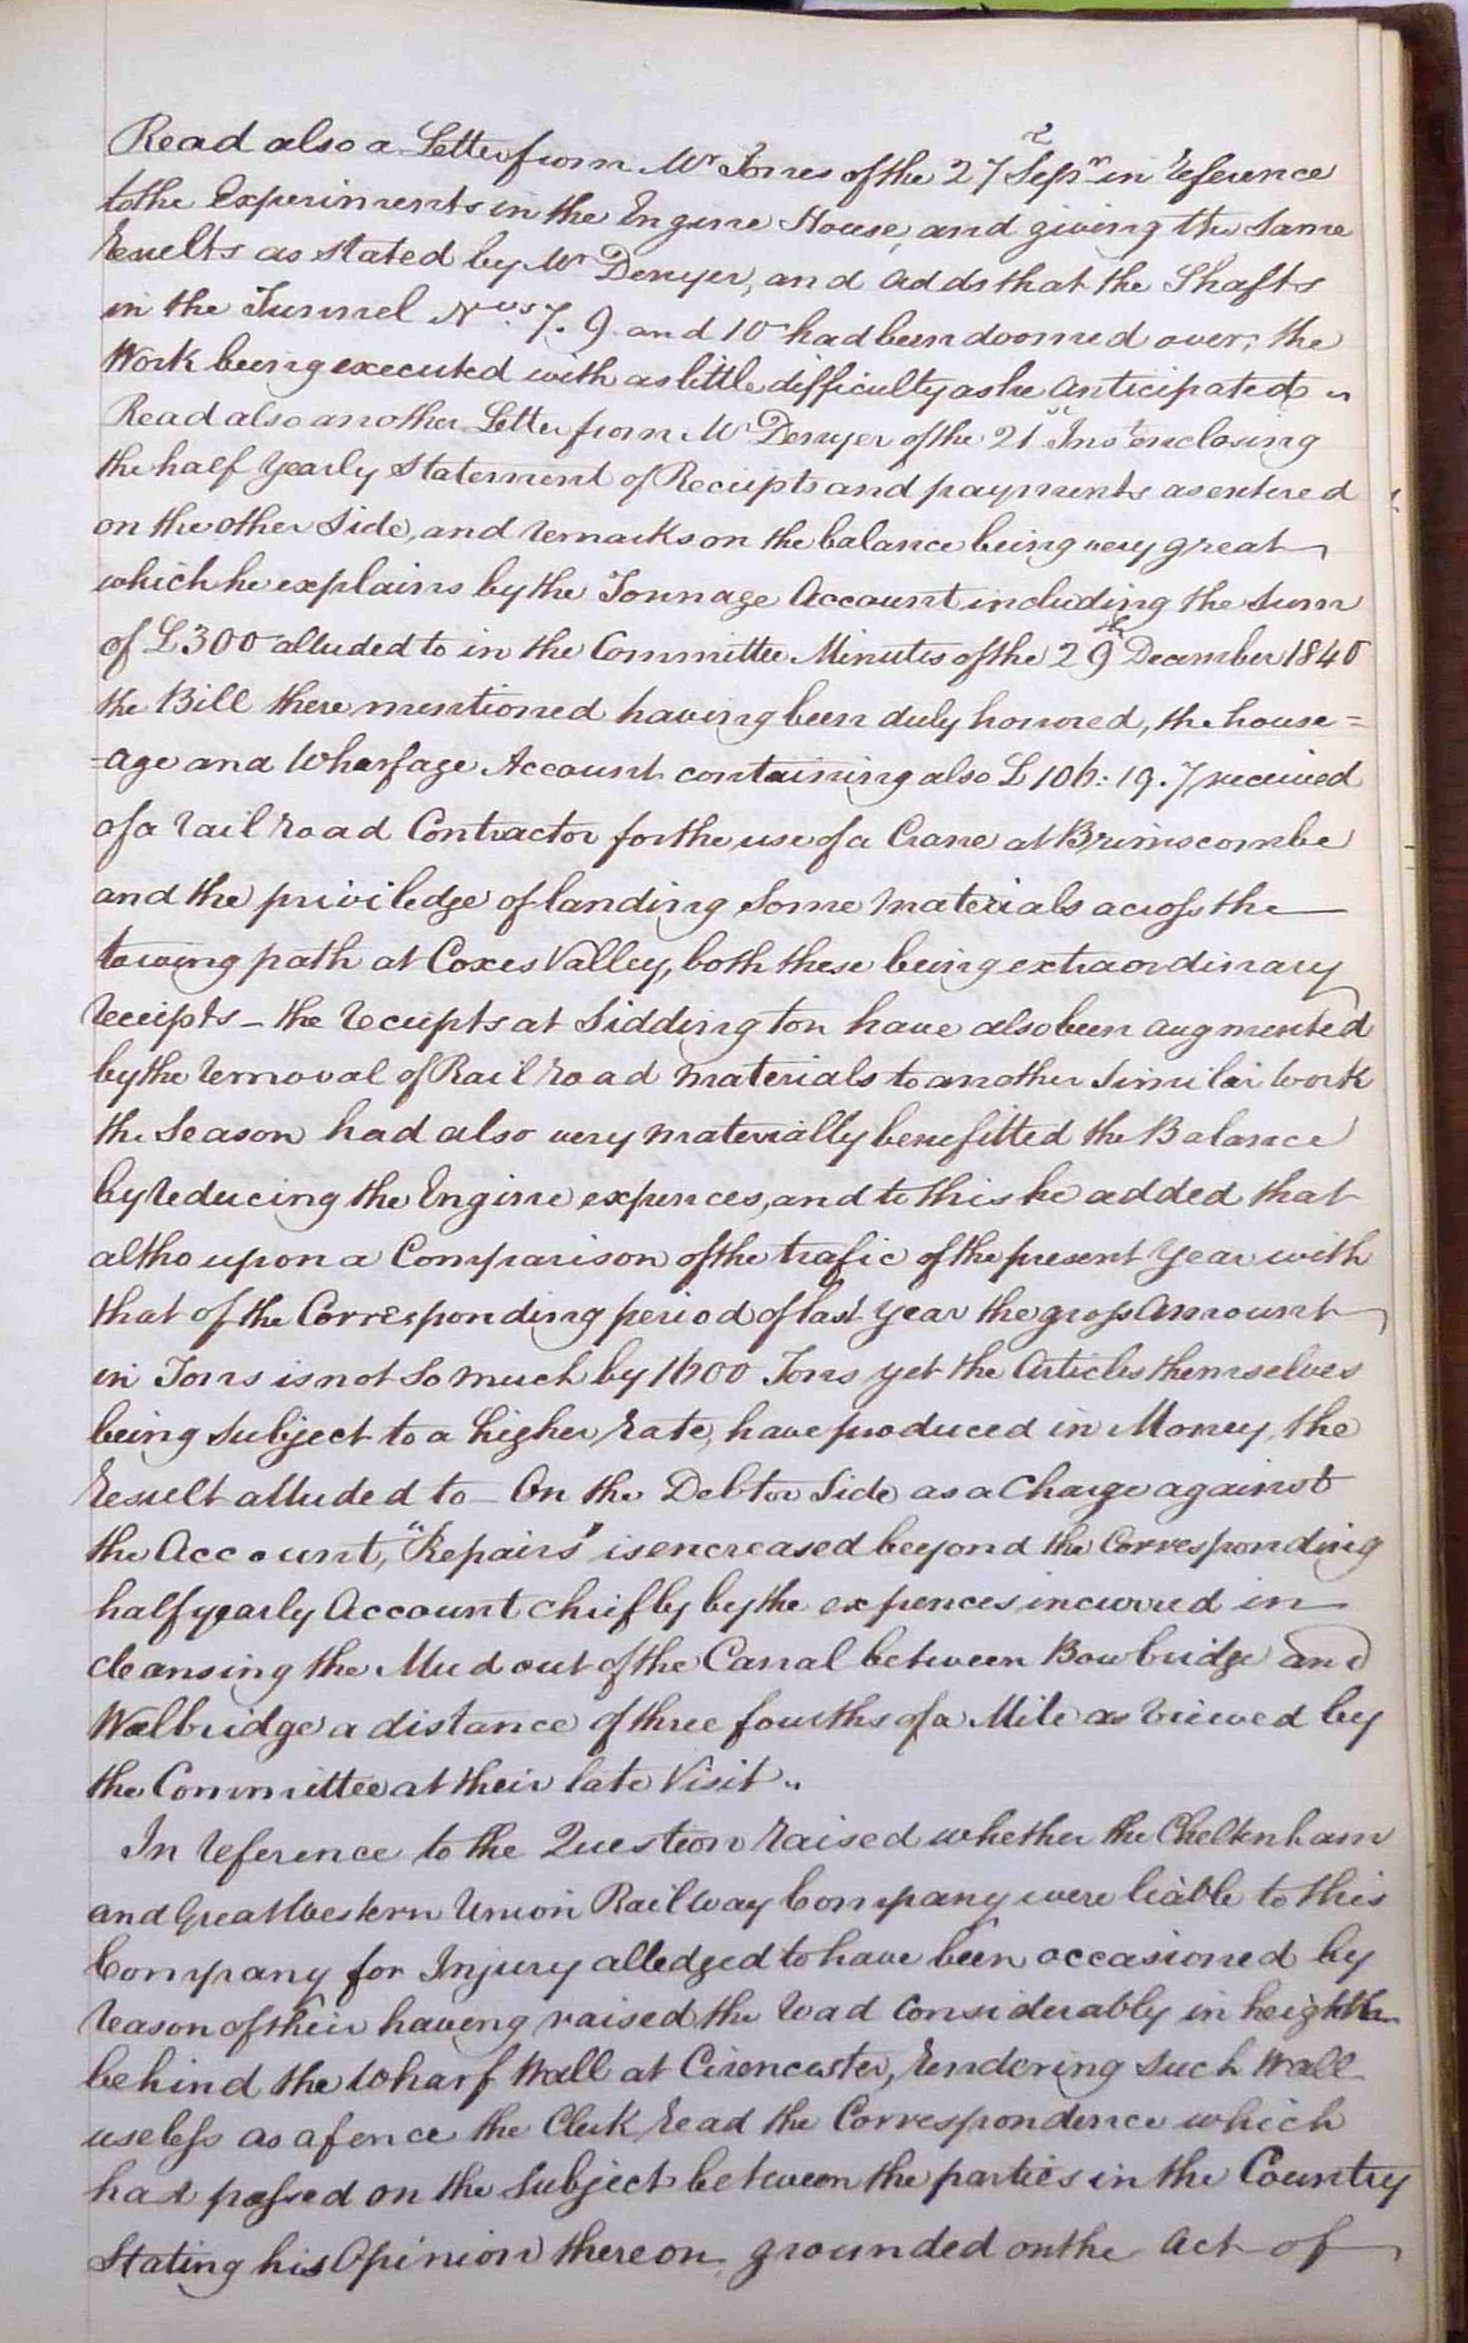 Read also a Letter from Mr Jones of the 27 Sepr in reference
to the Experiments in the Engine House, and giving the same
results as stated by Mr Denyer, and adds that the Shafts
in the Tunnel Nos. 7. 9. and 10 had been doomed over, the
Work being executed with as little difficulty as he anticipated
Read also another Letter from Mr Denyer of the 21st Inst enclosing
the half yearly statement of Receipts and payments as entered
on the other side, and remarks on the balance being very great
which he explains by the Tonnage Account including the Sum
of £300 alluded to in the Committee Minutes of the 29th December 1840
the Bill there mentioned having been duly honored, the house=
=age and Wharfage Account containing also £106: 19. 7 received
of a rail road Contractor for the use of a Crane at Brimscombe
and the priviledge of landing some materials across the
towing path at Coxes Valley, both these being extraordinary
receipts – the receipts at Siddington have also been augmented
by the removal of Rail road materials to another similar work
the Season had also very materially benefitted the Balance
by reducing the Engine expences, and to this he added that
altho upon a Comparison of the trafic of the present year with
that of the Corresponding period of last year the gross Amount
in Tons is not so much by 1600 Tons yet the Articles themselves
being subject to a higher rate, have produced in Money, the
result alluded to – On the Debtor Side as a Charge against
the Account, "Repairs" is encreased beyond the Corresponding
half yearly Account chiefly by the expences incurred in
cleansing the Mud out of the Canal between Bowbridge and
Walbridge a distance of three fourths of a Mile as viewed by
the Committee at their late Visit..
In reference to the Question raised whether the Cheltenham
and Great Western Union Railway Company were liable to this
Company for Injury alledged to have been occasioned by
reason of their having raised the road Considerably in height
behind the Wharf Wall at Cirencester, rendering such Wall
useless as a fence the Clerk read the Correspondence which
had passed on the subject between the parties in the Country
Stating his Opinion thereon grounded on the Act of